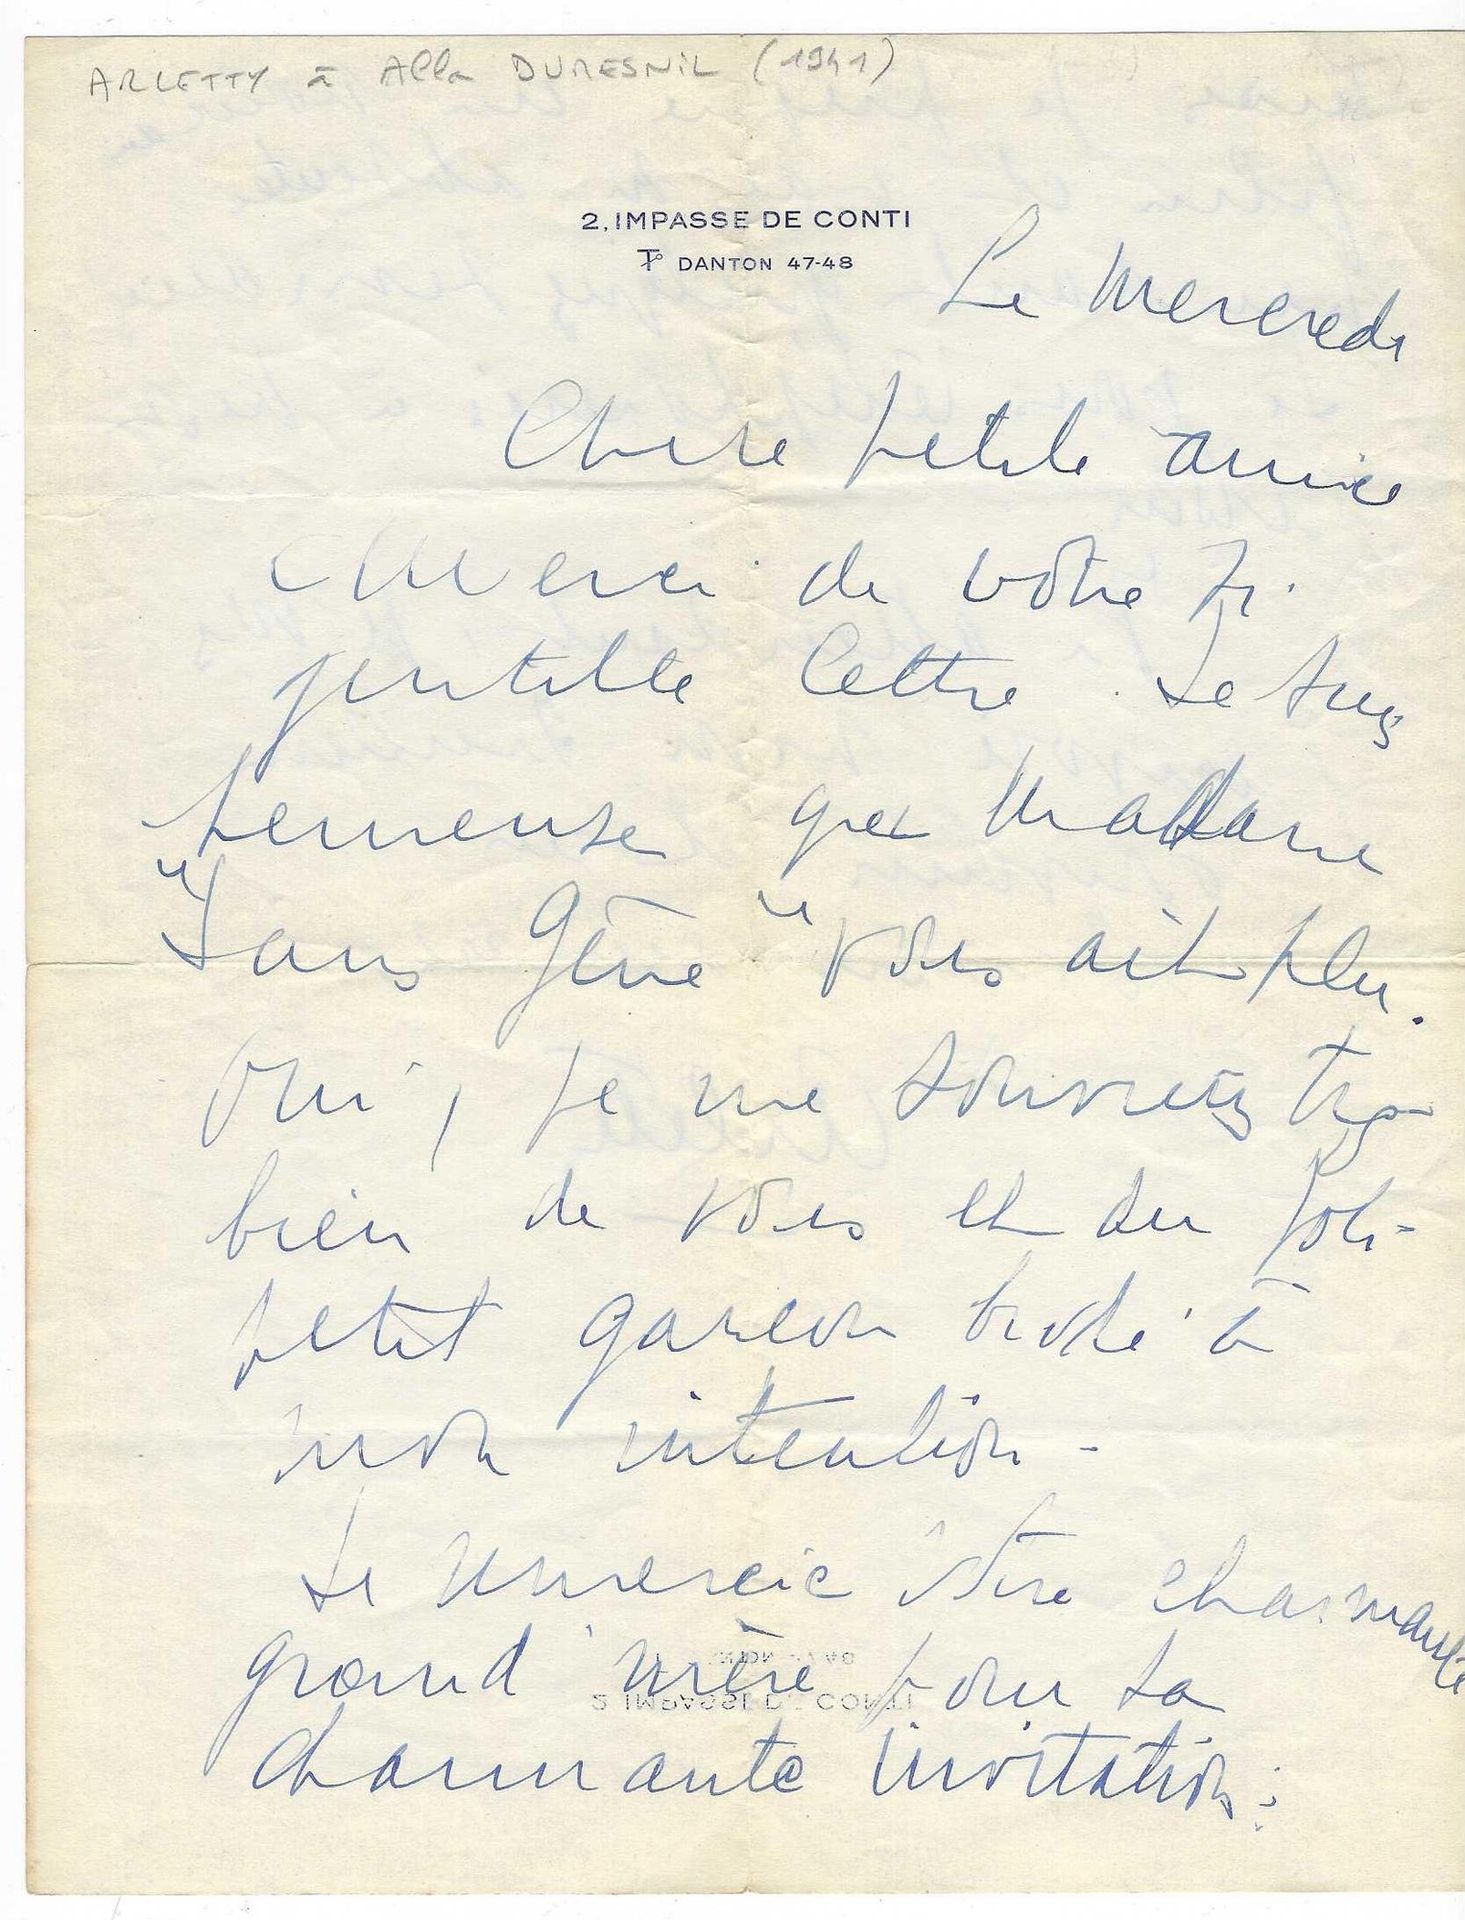 ARLETTY à Alla DUMESNIL (1941)
2, IMPASSE DE CONTI
DANTON 47-48
Le Mercredi
Chère petite amie
Merci de votre si
gentille lettre. Je suis
heureuse que Madame
"Sans Gêne" vous ait plu.
Oui, je me souviens très
bien de vous et du joli
petit garçon brodé à
mon intention -
Je remercie votre charmante
grand'mère pour sa
charmante invitation :